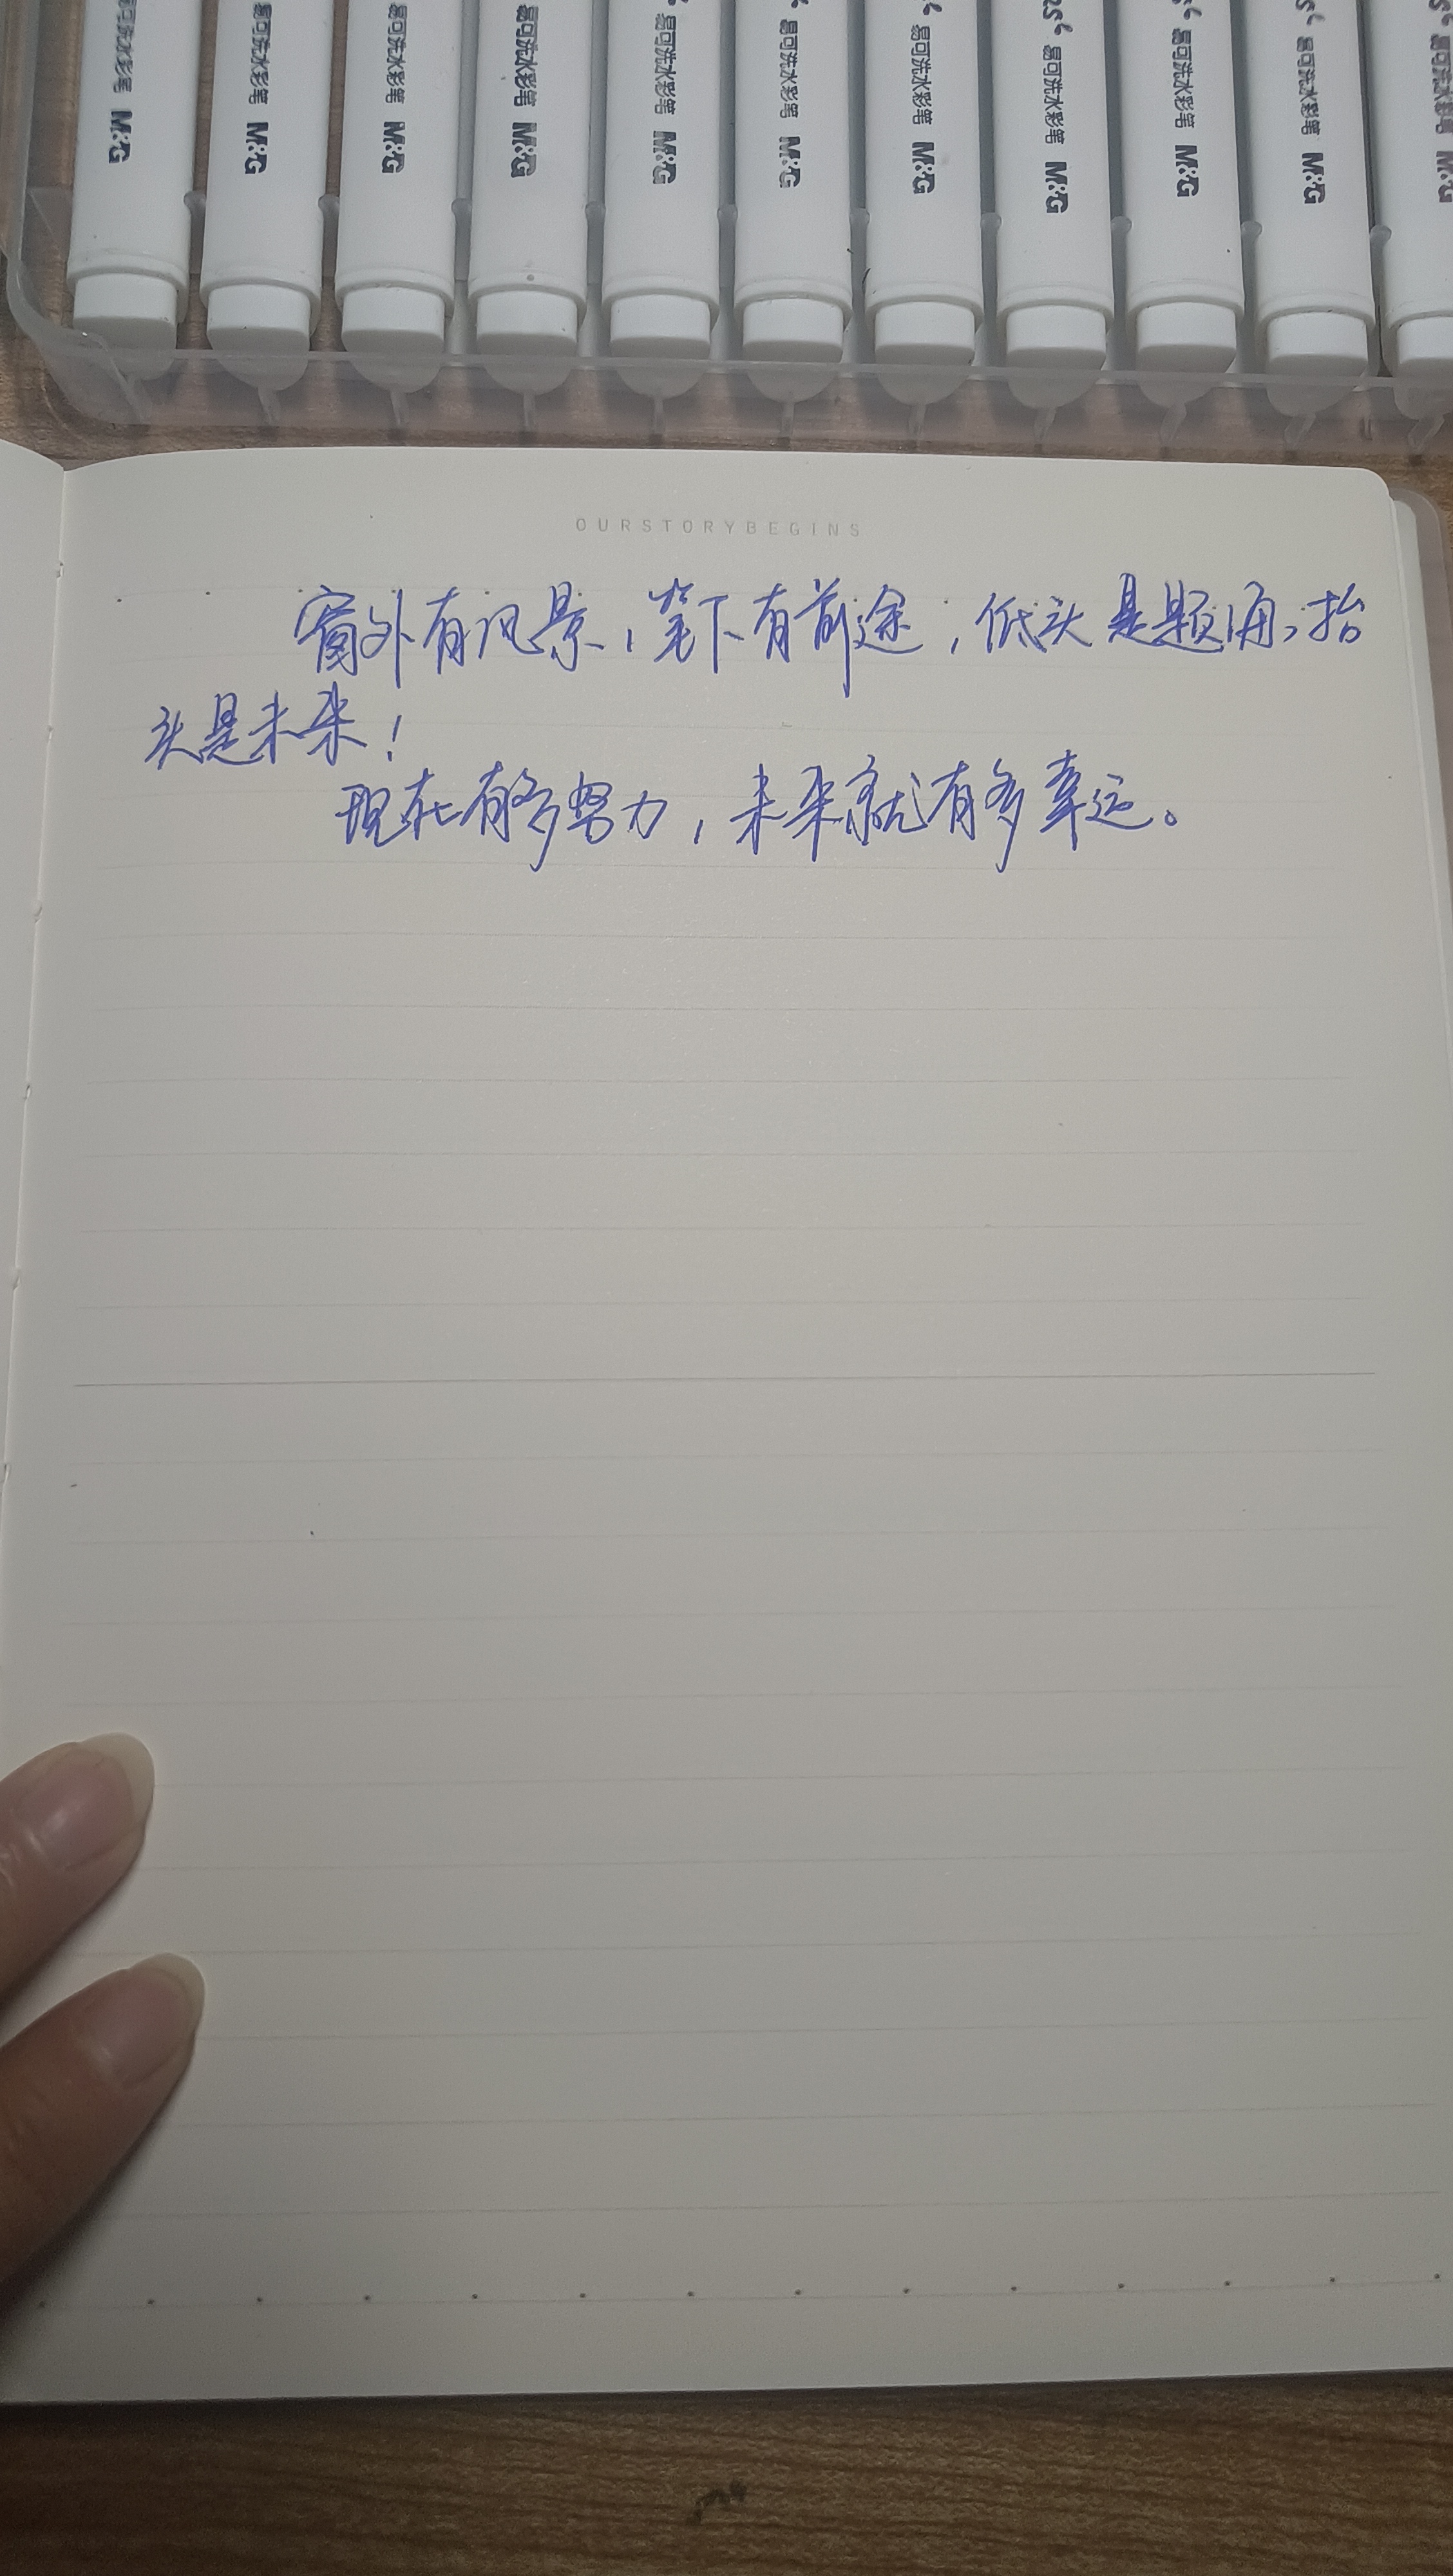 易可洗水彩笔 M&G
易可洗水彩笔 M&G
易可洗水彩笔 M&G
易可洗水彩笔 M&G
易可洗水彩笔 M&G
易可洗水彩笔 M&G
易可洗水彩笔 M&G
易可洗水彩笔 M&G
易可洗水彩笔 M&G
易可洗水彩笔 M&G
易可洗水彩笔 M&G
OURSTORYBEGINS
窗外有风景，笔下有前途，低头是题海，抬
头是未来！
现在有多努力，未来就有多幸运。